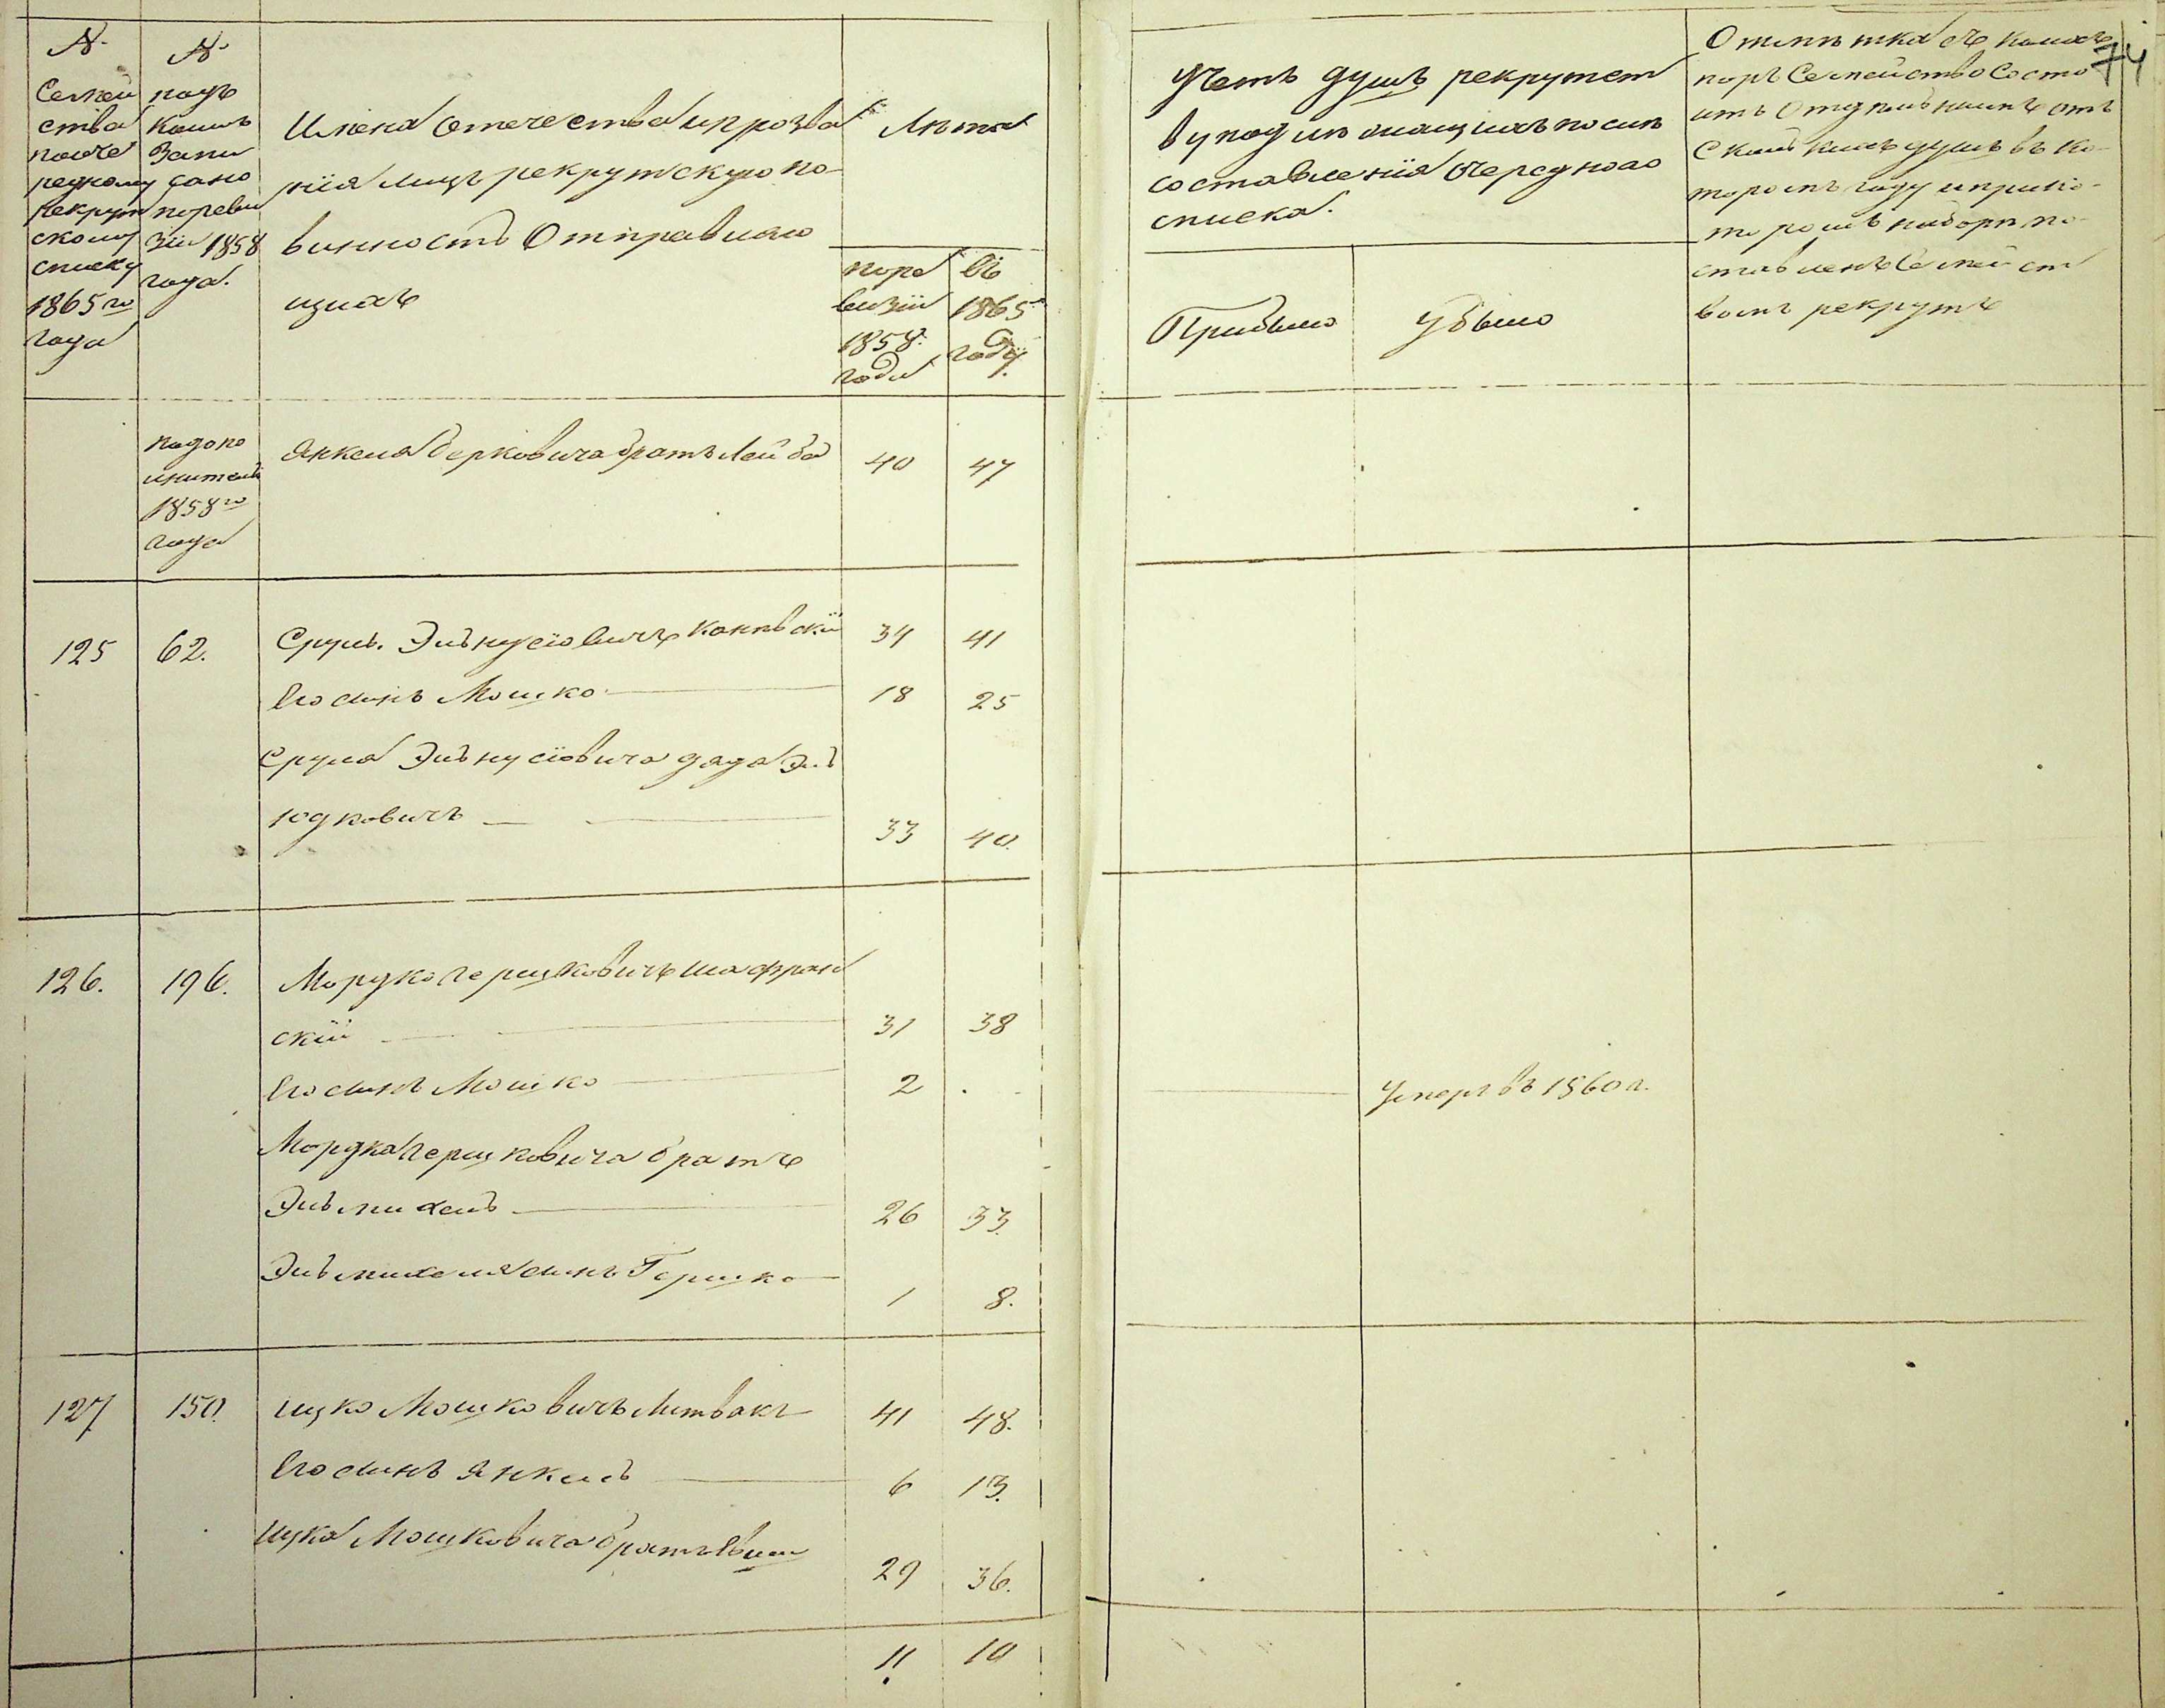 №
Семей
ства
по оче
редному
рекрут
скому
списку
1865го
года
№
подъ
коимъ
запи
сано
по реви
зіи 1858
года.
Имена отечества и прозва
нія лицъ рекрутскую по-
винность отправляю
щихъ
Лета
по ре
визіи
1858.
года
въ
1865
году.
Учетъ душъ рекрутст
ву подлежащихъ после
составленія очереднаго
списка.
Прибыло
Убыло
Отметка съ какихъ
поръ семейство состо
итъ отдельнымъ отъ
сколькихъ душъ въ ко-
торомъ году и при ко-
торомъ наборе по-
ставленъ семейст
вомъ рекрутъ
74
по допо
лнитель
1858го
года
Янкеля Берковича братъ Лейба 40 47
125 62. Сруль Эльнусіовичъ Каневскій 34 41
Его сынъ Мошко 18 25
Сруля Эльнусіовича дядя Эль
Юдковичъ 33 40.
126. 196. Мордко Гершковичъ Шафран
скій 31 38
Его сынъ Мошко 2 Умеръ въ 1860 г.
Мордка Гершковича братъ
Эльмихель 26 33.
Эльмихеля сынъ Гершко
1 8.
127 150. Ицко Мошковичъ Литвакъ 41 48.
Его сынъ Янкель 6 13.
Ицка Мошковича братъ
29 36.
11 10